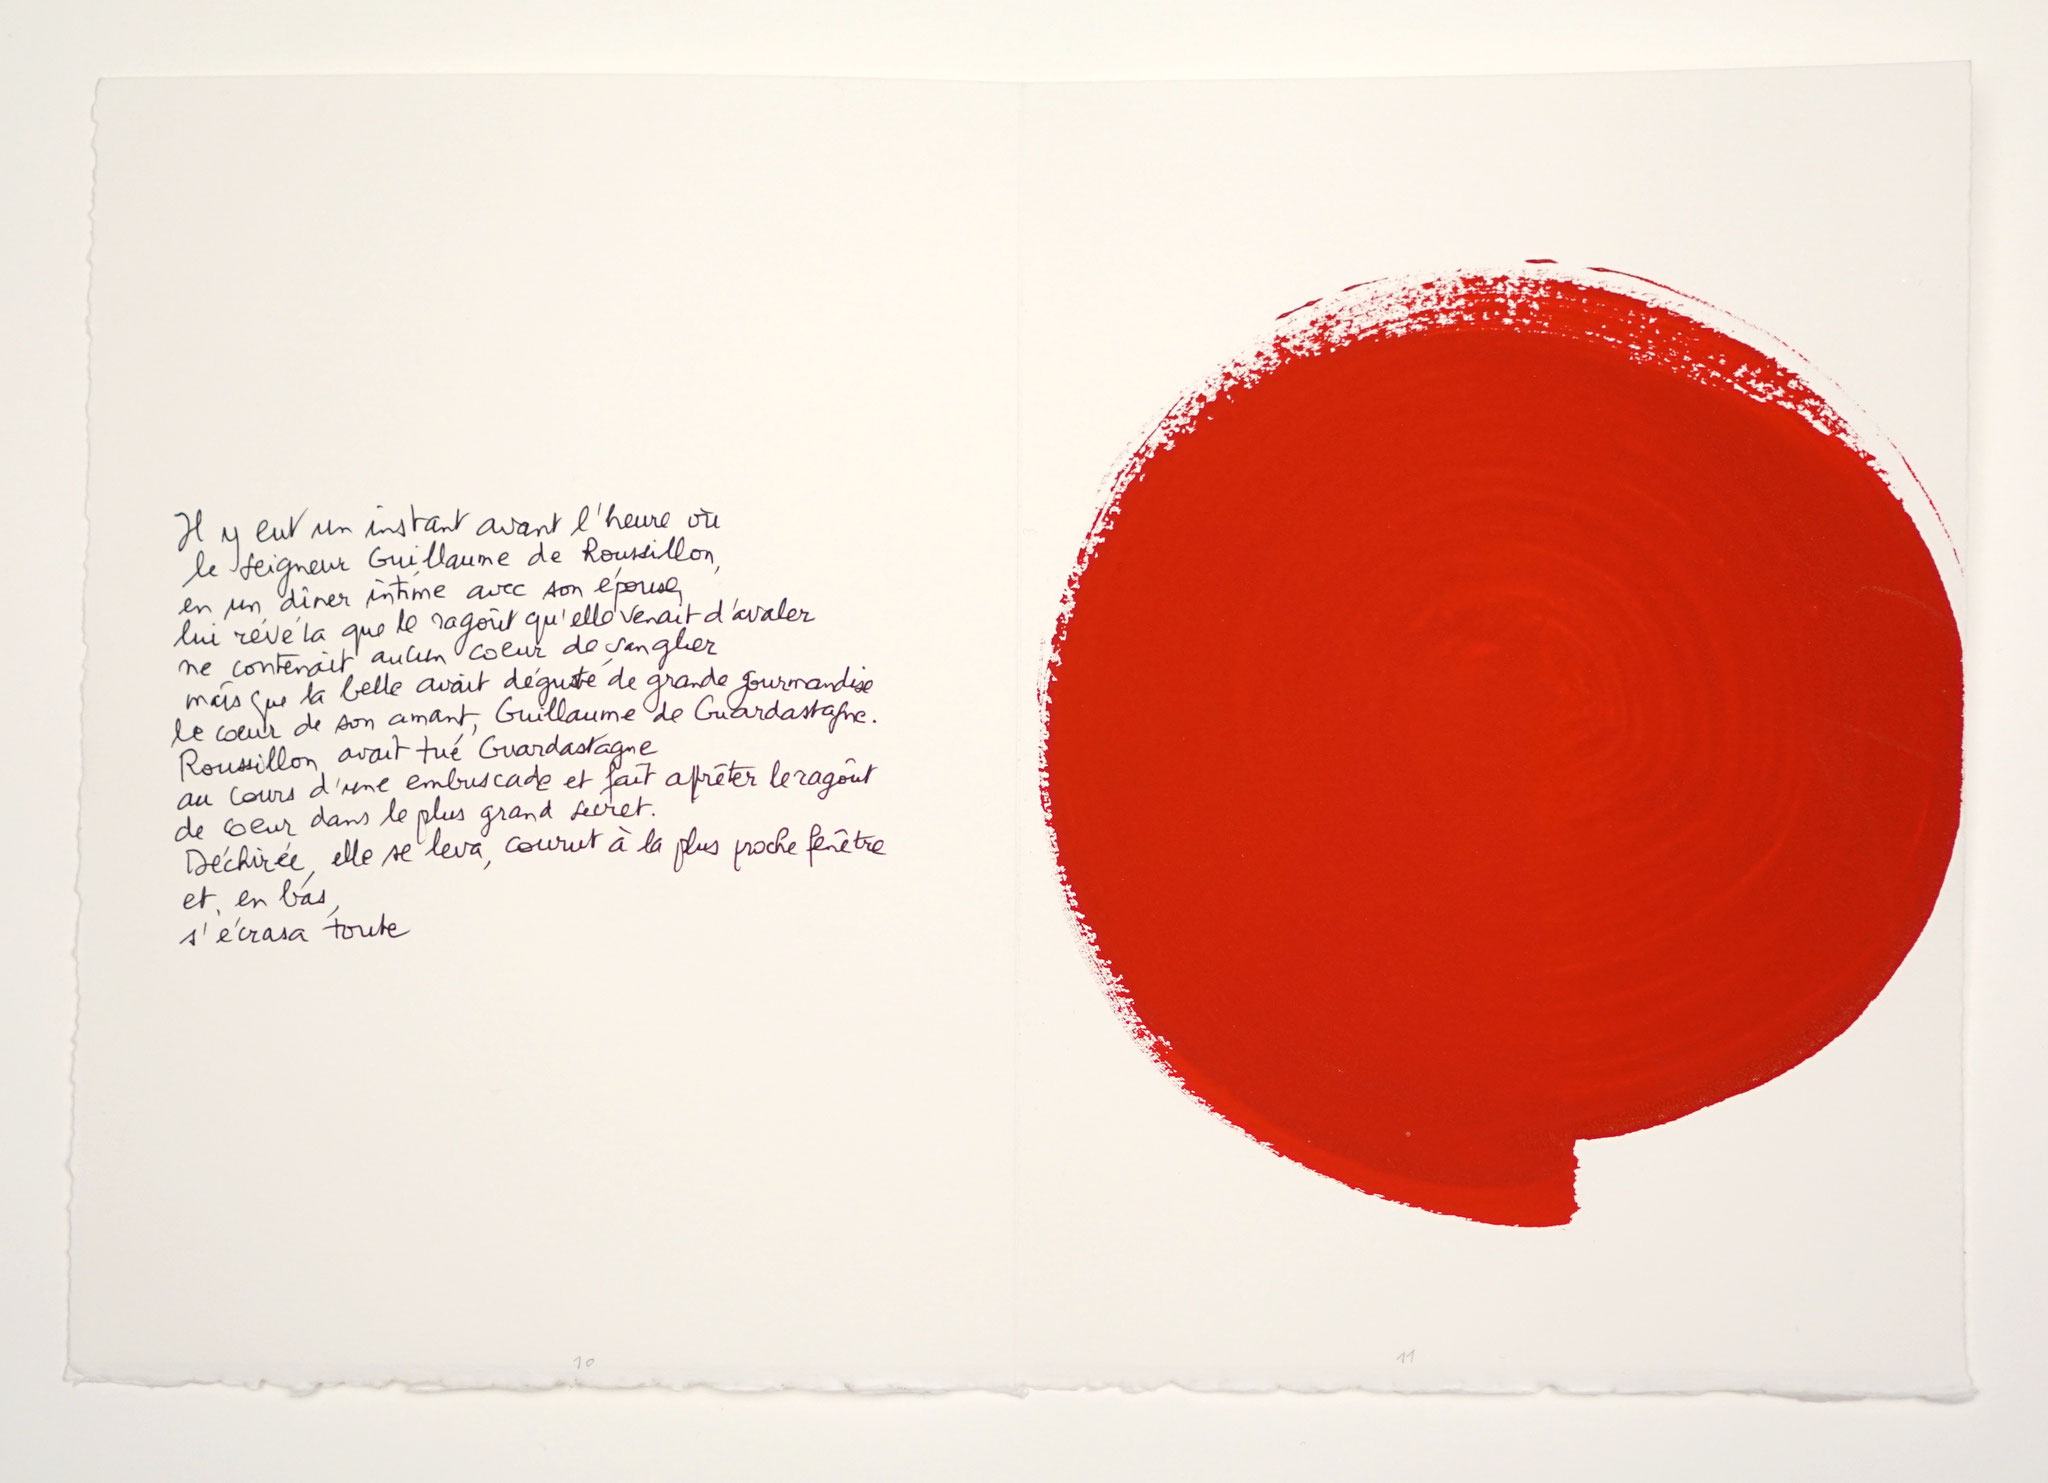 Il y eut un instant avant l'heure où
le seigneur Guillaume de Roussillon,
en un dîner intime avec son épouse,
lui révéla que le ragoût qu'elle venait d'avaler
ne contenait aucun coeur de sanglier
mais que la belle avait dégusté de grande gourmandise
le coeur de son amant, Guillaume de Guardastagne.
Roussillon avait tué Guardastagne
au cours d'une embuscade et fait apprêter le ragoût
de coeur dans le plus grand secret.
Déchirée, elle se leva, courut à la plus proche fenêtre
et, en bas,
s'écrasa toute
10
11